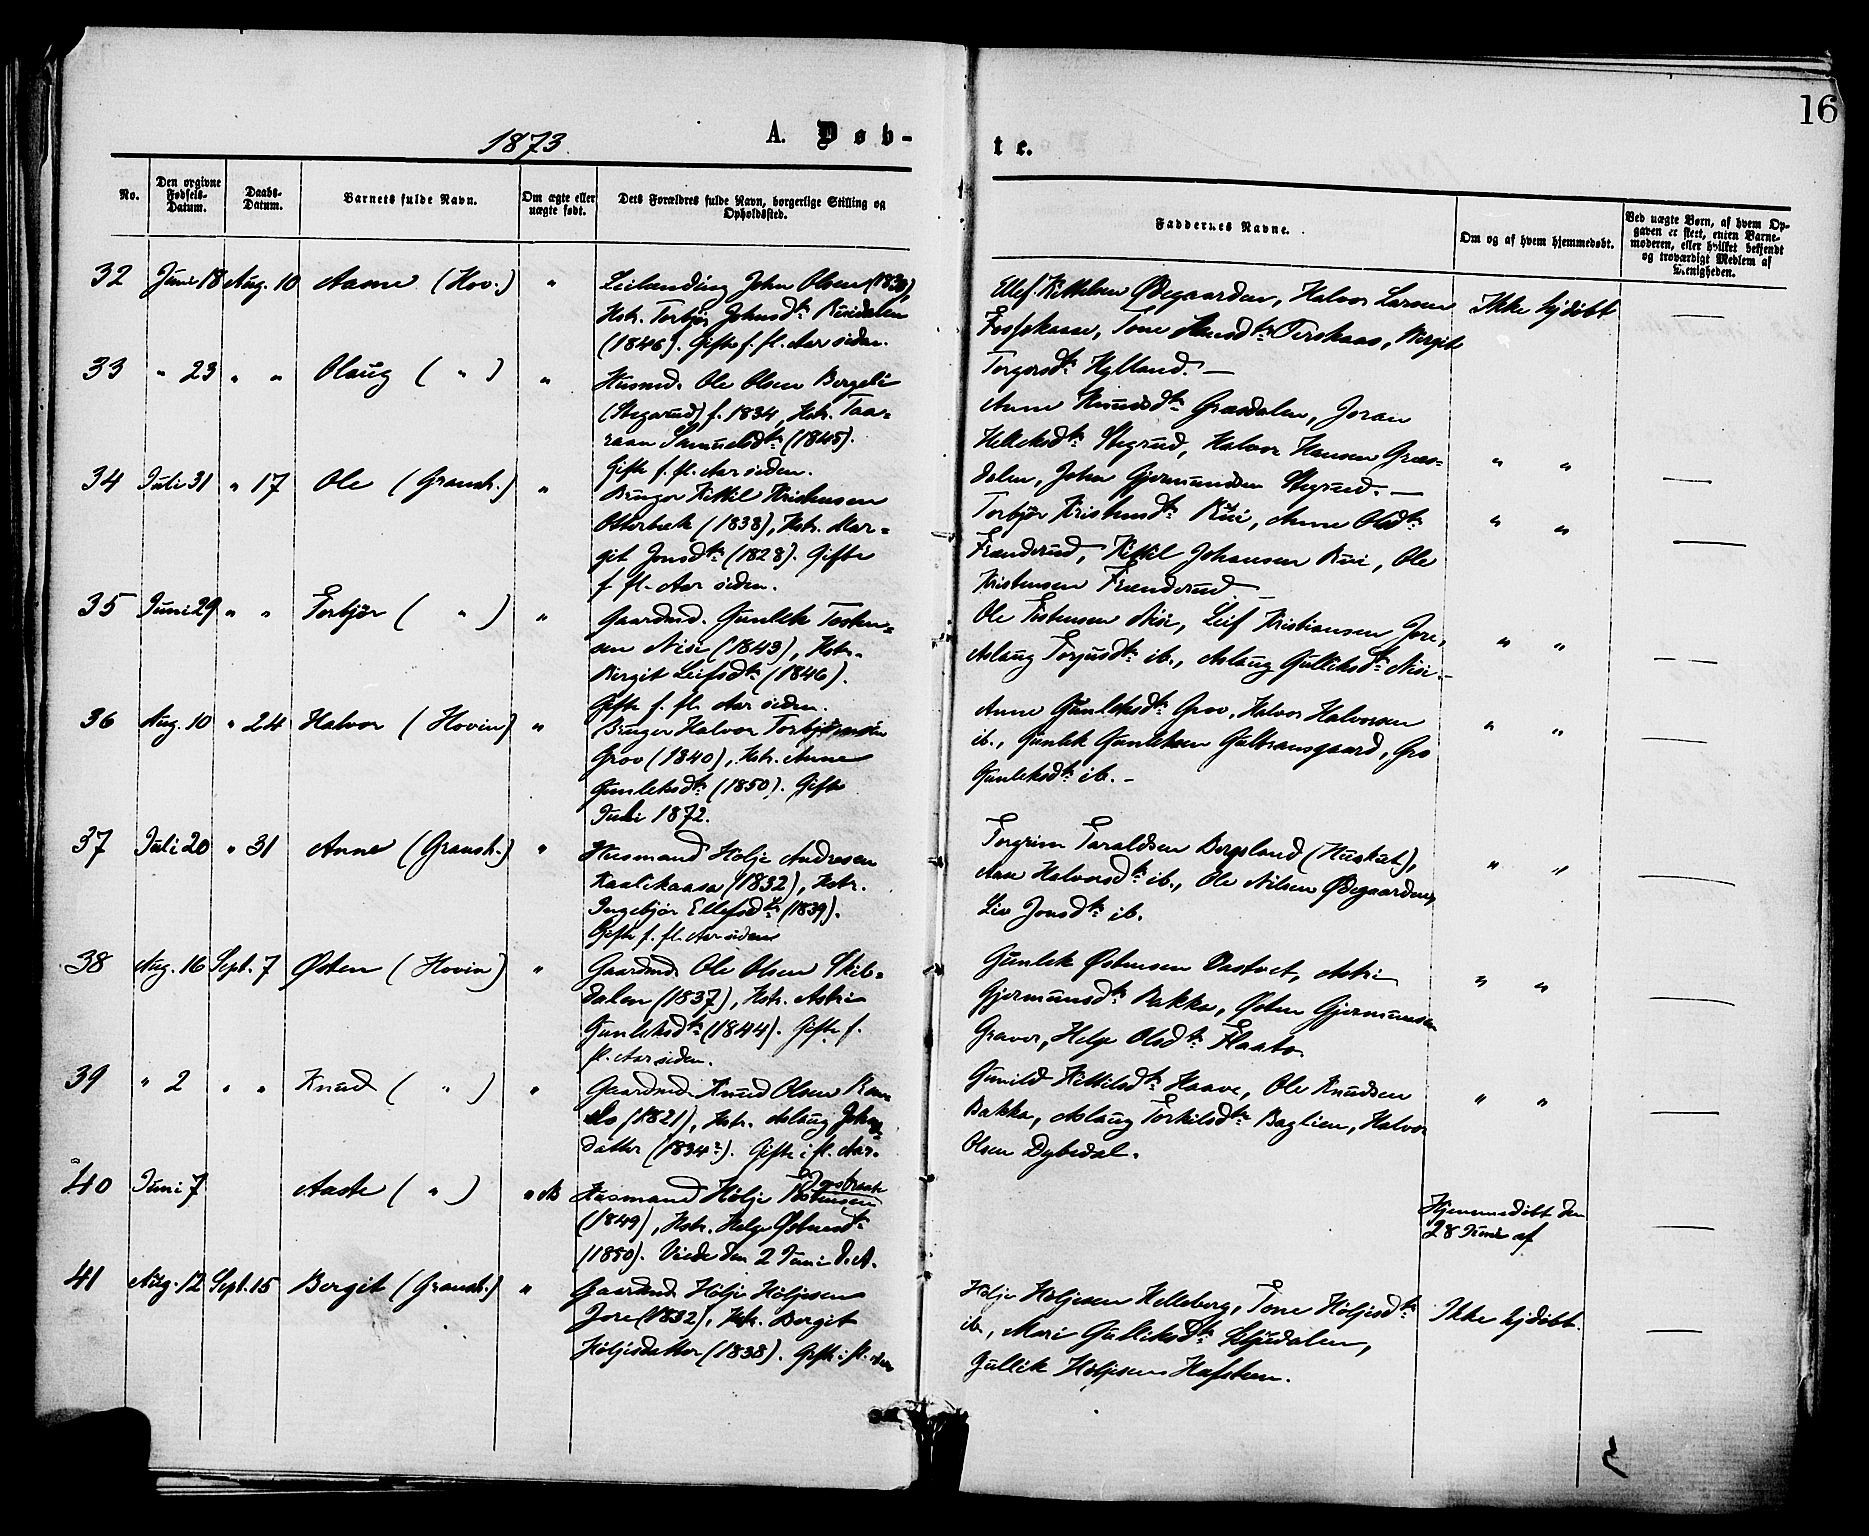 16
1873. A. Døb-
te.
No.
Den opgivne Fødsels-Datum.
Daabs-Datum.
Barnets fulde Navn.
Om ægte eller uægte født.
Dets Forældres fulde Navn, borgerlige Stilling og Opholdssted.
Faddernes Navne.
Om og af hvem hjemmedøbt.
Ved uægte Børn, af hvem Op-
gaven er skeet, enten Barne-
moderen, eller hvilket bekjendt
og troværdigt Medlem af
Menigheden.
32 Juni 18 Aug. 10 Aasne (Hov.) "
Leilending John Olsen (1830),
Hstr. Torbjør Johnsdtr
(1846). Gifte f. fl. Aar siden.
Ellef Kittelsen Ødegaarden, Halvor Larsen
Tone Bergit
Torgersdtr Hylland. —
Ikke hjdøbt —
33 " 23 " " Olaug ( " ) "
Husmd. Ole Olsen Bergeli
(Stegerud) f. 1834, Hstr. Taa-
raan Samuelsdtr (1845).
Gifte f. fl. Aar siden.
Anne Knudsdtr Græsdalen, Joran
Helleksdtr Stegrud, Halvor Hansen Græs-
dalen, John Gjermundsen Stegrud. —
" " —
34 Juli 31 " 17 Ole (Gransh.) "
Bruger Kittil Kristensen
Otterbæk (1838), Hstr. Mar-
git Jonsdtr (1828). Gifte
f. fl. Aar siden.
Torbjør Kristensdtr Rui, Anne Olsdtr
Frænderud, Kittil Johansen Rui, Ole
Kristensen Frænderud. —
" " —
35 Juni 29 " " Torbjør ( " ) "
Gaardmd. Gunlek Tosten-
sen Nisi (1843), Hstr.
Bergit Leifsdtr (1846).
Gifte f. fl. Aar siden.
Ole Tostensen Nisi, Leif Kristiansen Jore,
Aslaug Torjusdtr ib., Aslaug Gulliksdtr Nisi. —
" " — —
36 Aug. 10 " 24 Halvor (Hovin) "
Bruger Halvor Torbjørnsen
Grov (1840), Hstr. Anne
Gunleksdtr (1850). Gifte
Juli 1872.
Anne Gunleksdtr Grov, Halvor Halvorsen
ib., Gunlek Gunleksen Gulbransgaard, Gro
Gunleksdtr ib. —
" " —
37 Juli 20 " 31 Anne (Gransh.) "
Husmand Hølje Andresen
Kaalekaasa (1832), Hstr.
Ingebjør Ellefsdtr (1839).
Gifte f. fl. Aar siden
Torgrim Taraldsen Bergsland (Huskut),
Aan Halvorsdtr ib., Ole Nilsen Ødegaarden,
Liv Jonsdtr ib.
" " —
38 Aug. 16 Sept. 7 Østen (Hovin) "
Gaardmd. Ole Olsen Skib-
dalen (1837), Hstr. Astri
Gunleksdtr (1844). Gifte f.
fl. Aar siden.
Gunlek Østensen Astri
Gjermunsdtr Bakka, Østen Gjermunsen
Graver, Helge Olsdtr Flaato
" " —
39 " 2 " " Knud ( " ) "
Gaardmd. Knud Olsen
(1821), Hstr. Aslaug Johns-
datter (1834?). Gifte i fl. Aar.
Gunild Kittilsdtr Haave, Ole Knudsen
Bakka, Aslaug Torkilsdtr Baglien, Halvor
Olsen Dybedal.
" " —
40 Juni 7 Aaste ( " ) "
Husmand Hølje Tostensen
(1849), Hstr. Helge Østensdtr
(1850). Viede den 2 Juni d. A.
Hjemmedøbt den
28 Juni af —
41 Aug. 12 Sept. 15 Bergit (Gransh.) "
Gaardmd. Hølje Høljesen
Jore (1832), Hstr. Bergit
Høljesdatter (1838). Gifte i fl. Aar
Hølje Høljesen Helleberg, Tone Høljesdtr
ib., Mari Gulliksdtr
Gullik Høljesen Hafsten.
Ikke hjdøbt. —